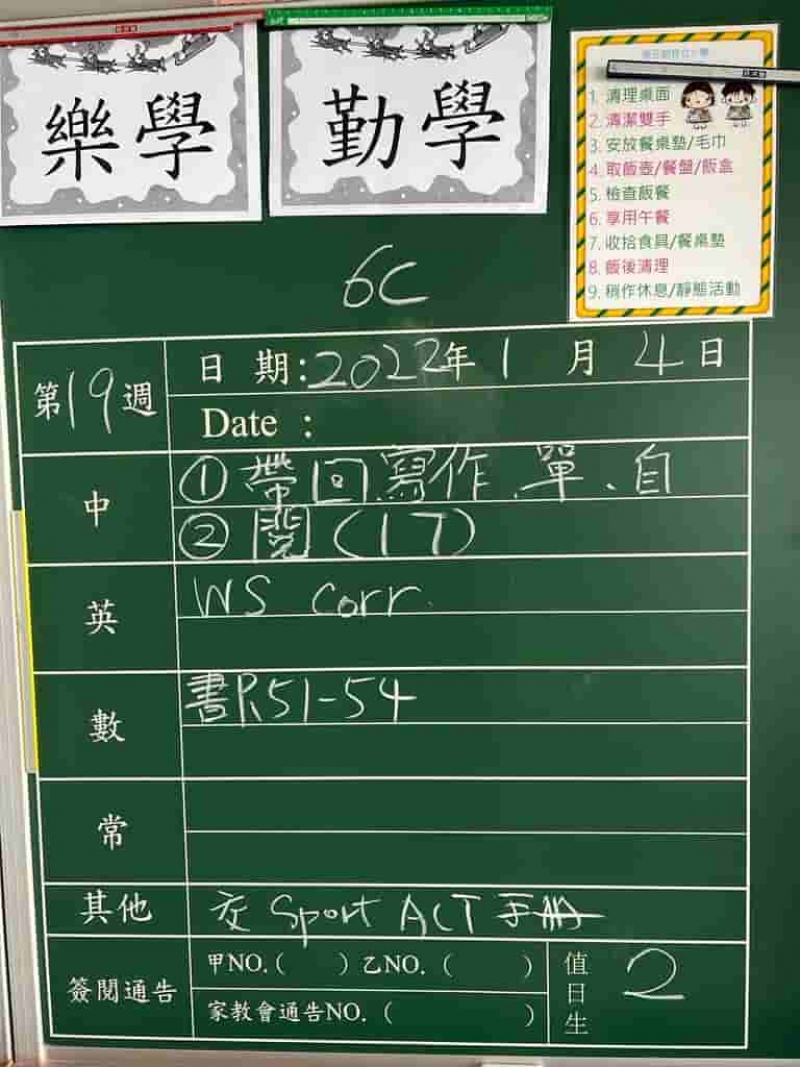 樂學
勤學
1. 清理桌面
2. 清潔雙手
3. 安放餐桌墊/毛巾
4. 取飯壺/餐盤/飯盒
5. 檢查飯餐
6. 享用午餐
7. 收拾食具/餐桌墊
8. 飯後清理
9. 稍作休息/靜態活動
6C
第19週
日期:2022年1月4日
Date :
中
①帶回寫作、單、自
②閱(17)
英
WS corr.
數
書P.51-54
常
其他
交 Sport ACT 手冊
簽閱通告
甲NO.( ) 乙NO. ( )
家教會通告NO. ( )
值日生
2